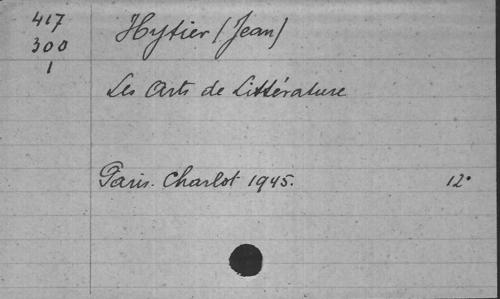 417
300
1
Hytier (Jean)
Les Arts de Littérature
Paris. Charlot 1945. 12°